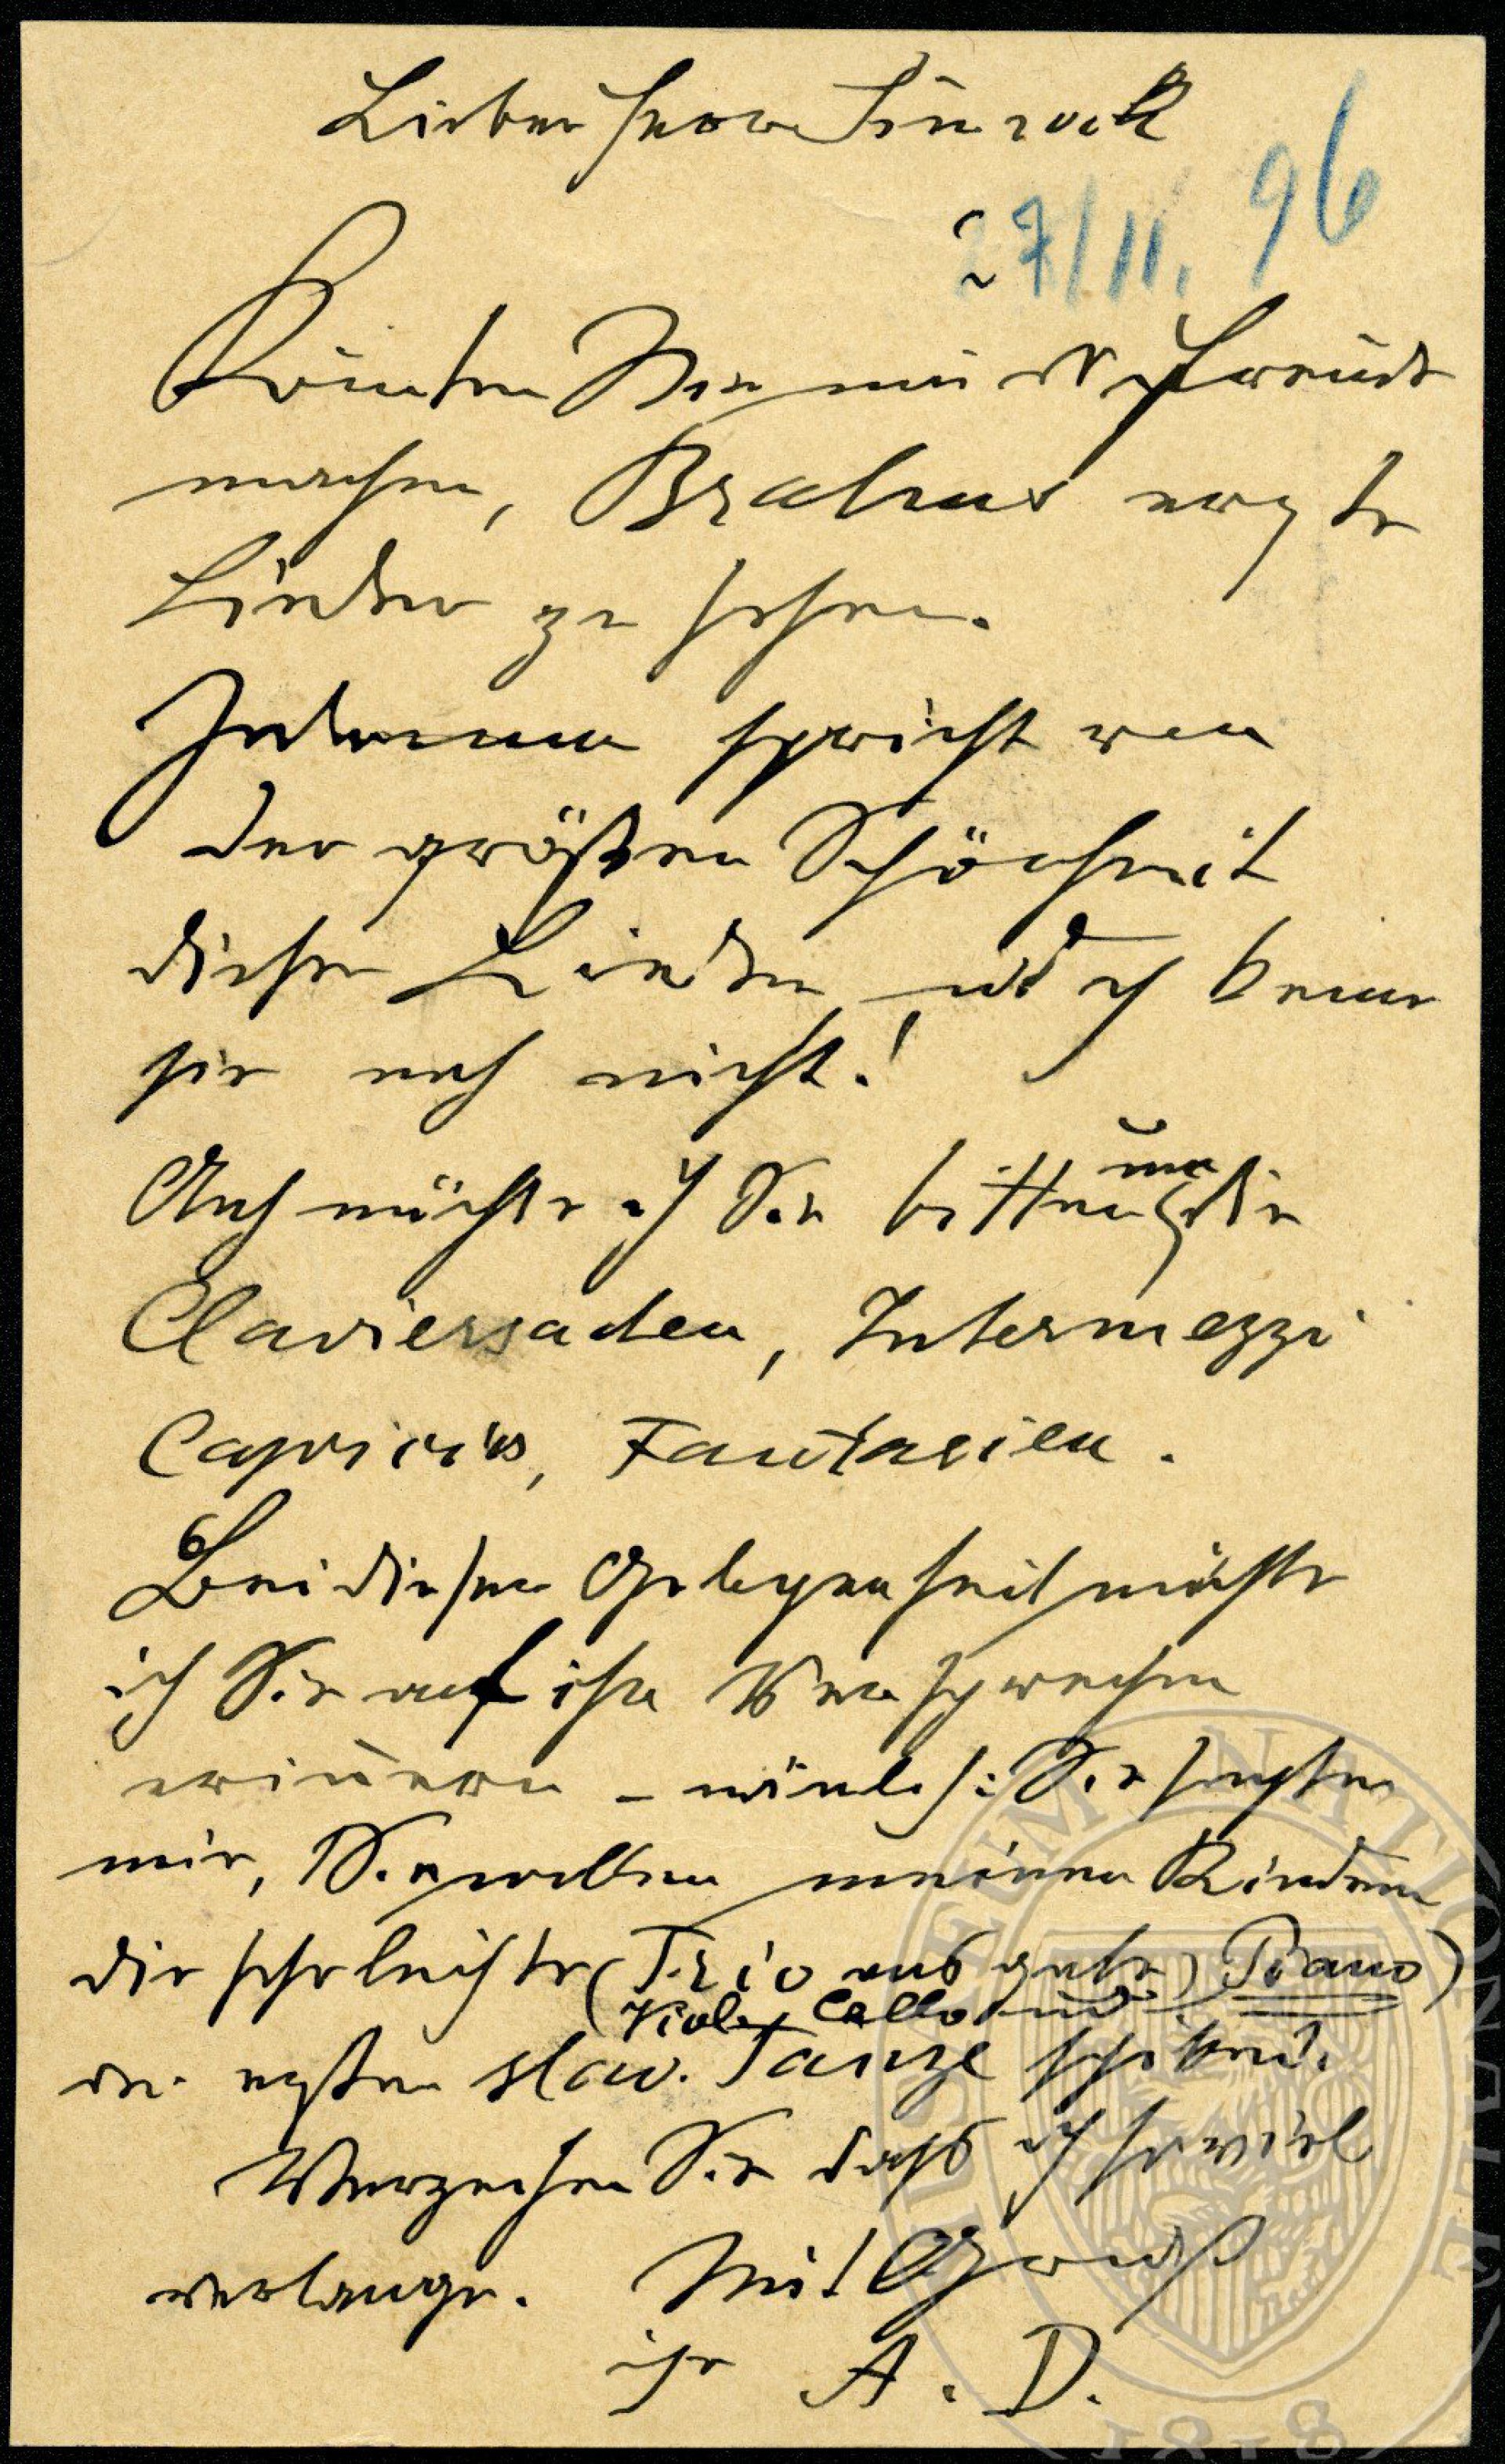 Lieber Herr Simrock
27/11. 96
Könten Sie mir d Freude
machen, Brahms ernste
Lieder zu sehen.
Jederman spricht von
der größten Schönheit
dieser Lieder, und ich kenne
sie noch nicht!
Auch möchte ich Sie bitten um die
Claviersachen, Intermezzi
Capricios, Fantasien.
Bei dieser Gelegenheit möchte
ich Sie auf ihr Versprechen
erinnern – nämlich: Sie sagten
mir, Sie wollten meinen Kindern
die sehr leichte (Trio Piano)
Viol., Cello und
der ersten slav. Tänze schicken.
Verzeihen Sie daß ich so viel
verlange. Mit Gruß
ihr A. D.
MUSAEUM NATIONALE
1818